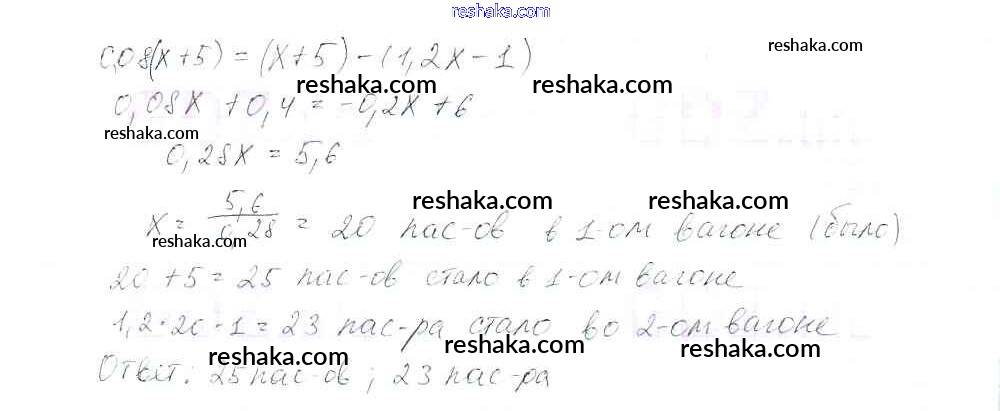 reshaka.com
0,08(x+5) = (x+5) - (1,2x - 1)
reshaka.com
reshaka.com
reshaka.com
0,08x + 0,4 = -0,2x + 6
reshaka.com
0,28x = 5,6
x = 5,6 / 0,28 = 20 пас-ов в 1-ом вагоне (было)
reshaka.com
reshaka.com
20 + 5 = 25 пас-ов стало в 1-ом вагоне
1,2·20 - 1 = 23 пас-ра стало во 2-ом вагоне
reshaka.com
reshaka.com
reshaka.com
Ответ: 25 пас-ов; 23 пас-ра